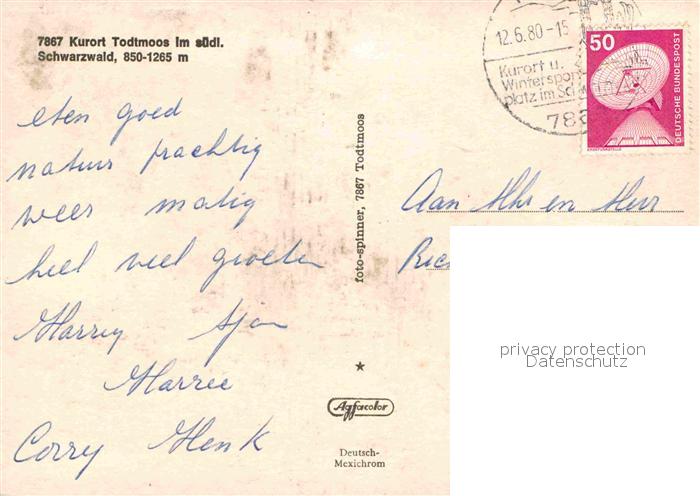 7867 Kurort Todtmoos im südl.
Schwarzwald, 850-1265 m
eten goed
natuur prachtig
weer matig
heel veel groeten
Harrey Sjan
Marree
Corry Henk
foto-spinner, 7867 Todtmoos
Agfacolor
Deutsch-
Mexichrom
12.6.80-15
Kurort u.
Wintersport
platz im Schw
786
50
DEUTSCHE BUNDESPOST
Aan Mhr en Mevr
privacy protection
Datenschutz